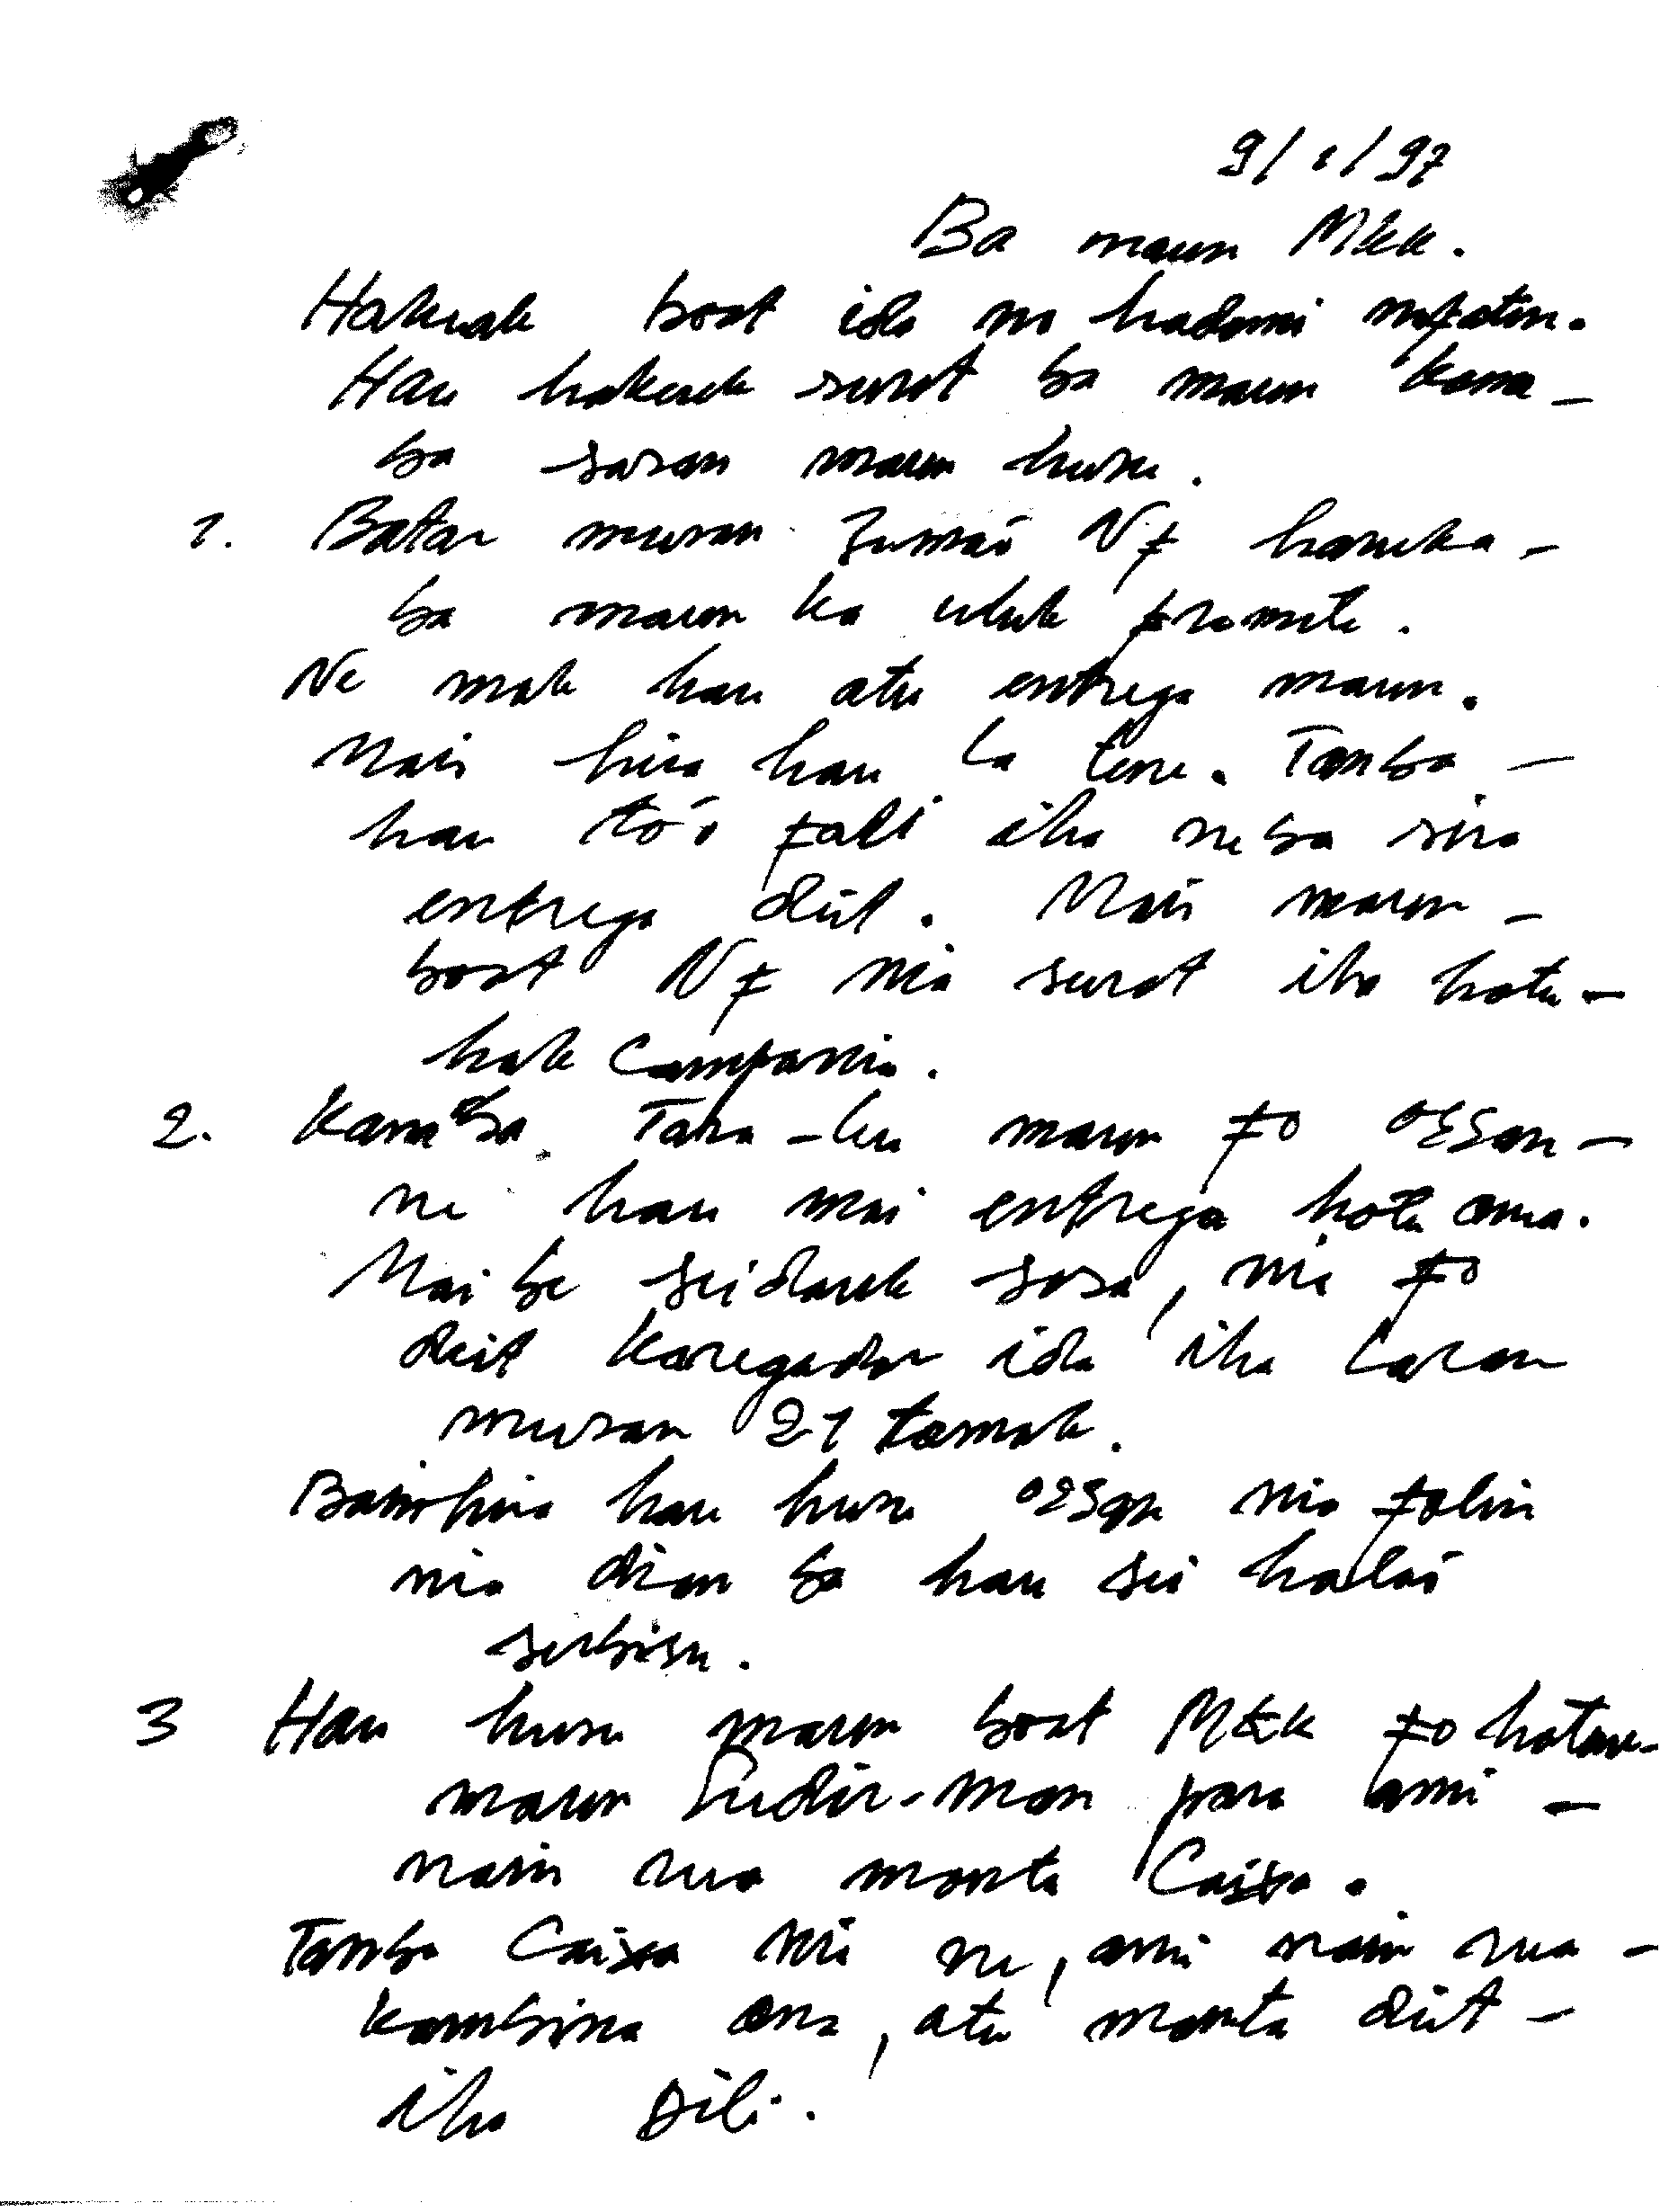 9/1/97
Ba maun Mkk.
Hakuak boot ida no hadomi nafatin.
Hau hakerek surat ba maun kona-
ba sasan maun husu.
1. Batar musan Sumas Nf haruka-
ba maun ka uluk promete.
Ne mak hau atu entrega maun.
Mais hira hau la tene. Tamba-
hau tó'o fali iha neba sira
entrega deit. Mais maun-
boot Nf nia surat iha hotu-
hale Compania.
2. Kona ba Taha-lu maun fo osan-
ne hau mai entrega hotu ona.
Mai be seidauk sosa, nia fo
deit karegador ida iha laran
musan 21 tomak.
Bainhira hau husu osan nia folin
nia dian ba hau sei halao
serbisu.
3 Hau husu maun boot Mkk fo hatene-
maun Sudir-man para ami-
nain rua monta Caixa.
Tamba Caixa nei ne, ami nain rua-
kombina ona, atu monta deit-
iha Dili.